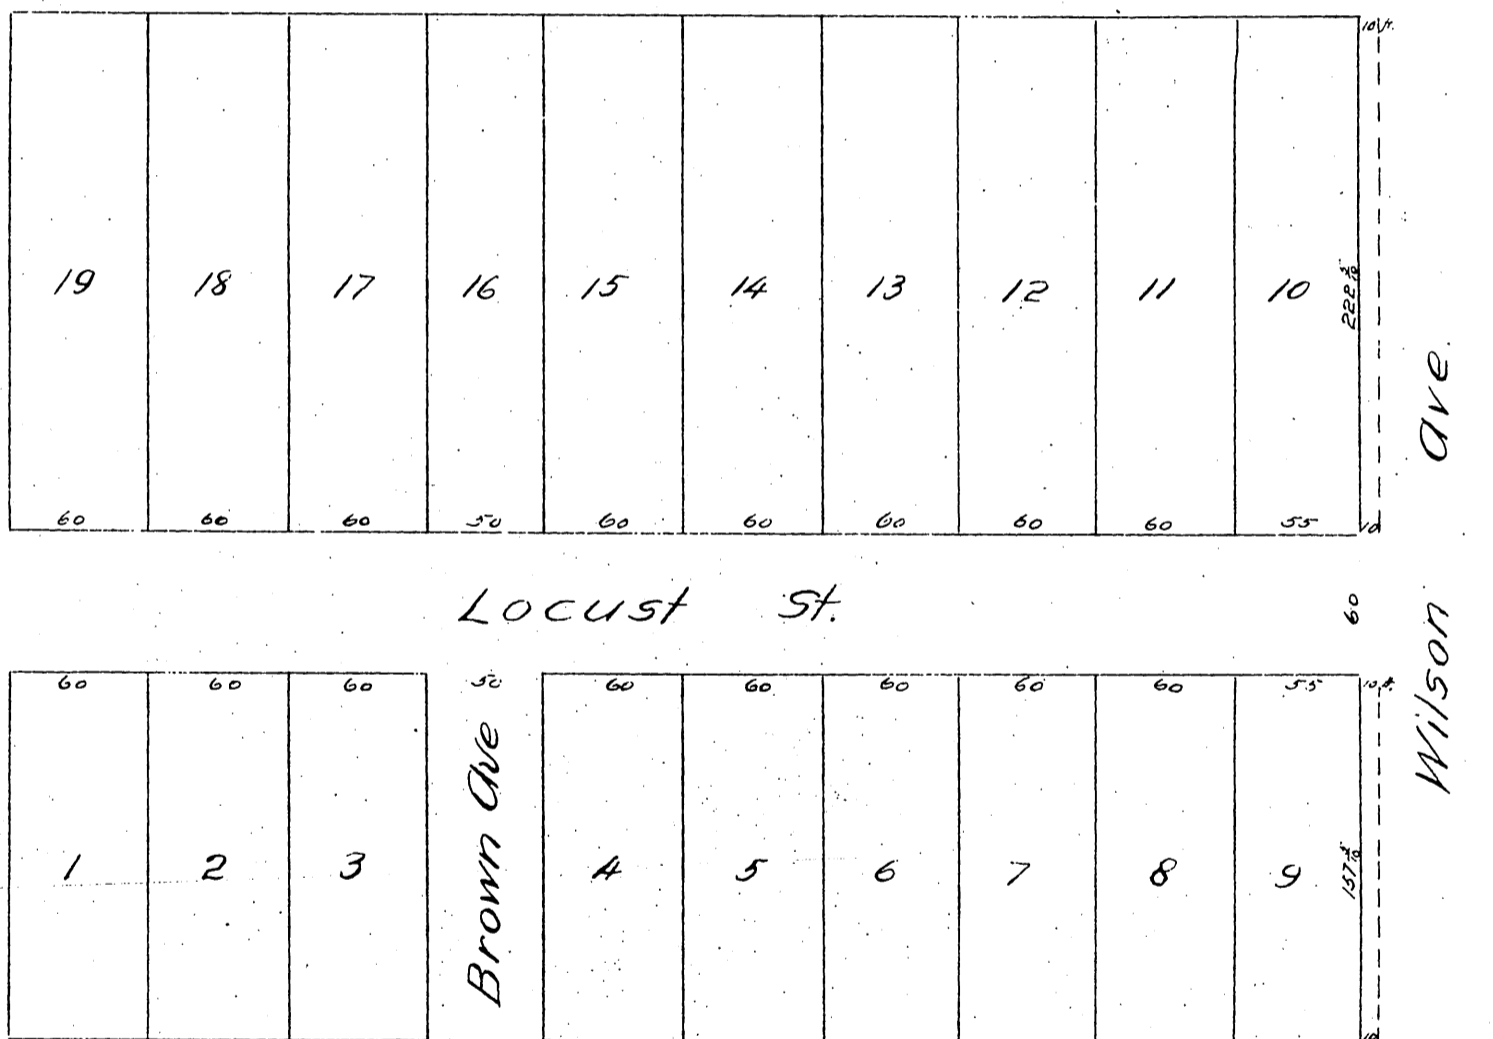 10 ft.
19 18 17 16 15 14 13 12 11 10
222 5/10
60 60 60 50 60 60 60 60 60 55 10
Locust St.
60
Wilson Ave.
60 60 60 50 60 60 60 60 60 55 10 ft.
Brown Ave
1 2 3 4 5 6 7 8 9
157 5/10
10